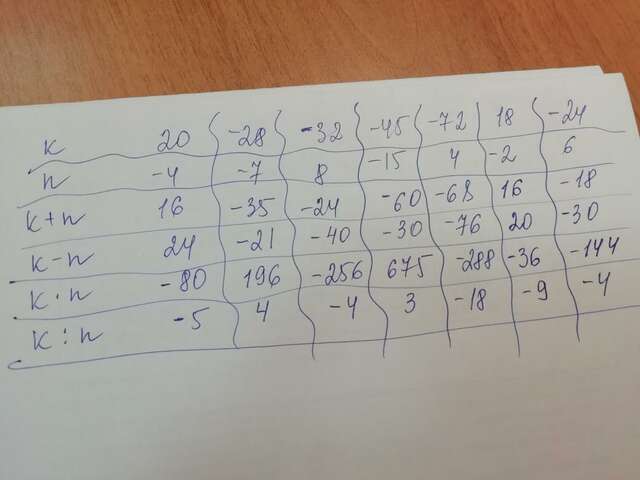 к 20 -28 -32 -45 -72 18 -24
n -4 -7 8 -15 4 -2 6
к+n 16 -35 -24 -60 -68 16 -18
к-n 24 -21 -40 -30 -76 20 -30
к·n -80 196 -256 675 -288 -36 -144
к:n -5 4 -4 3 -18 -9 -4